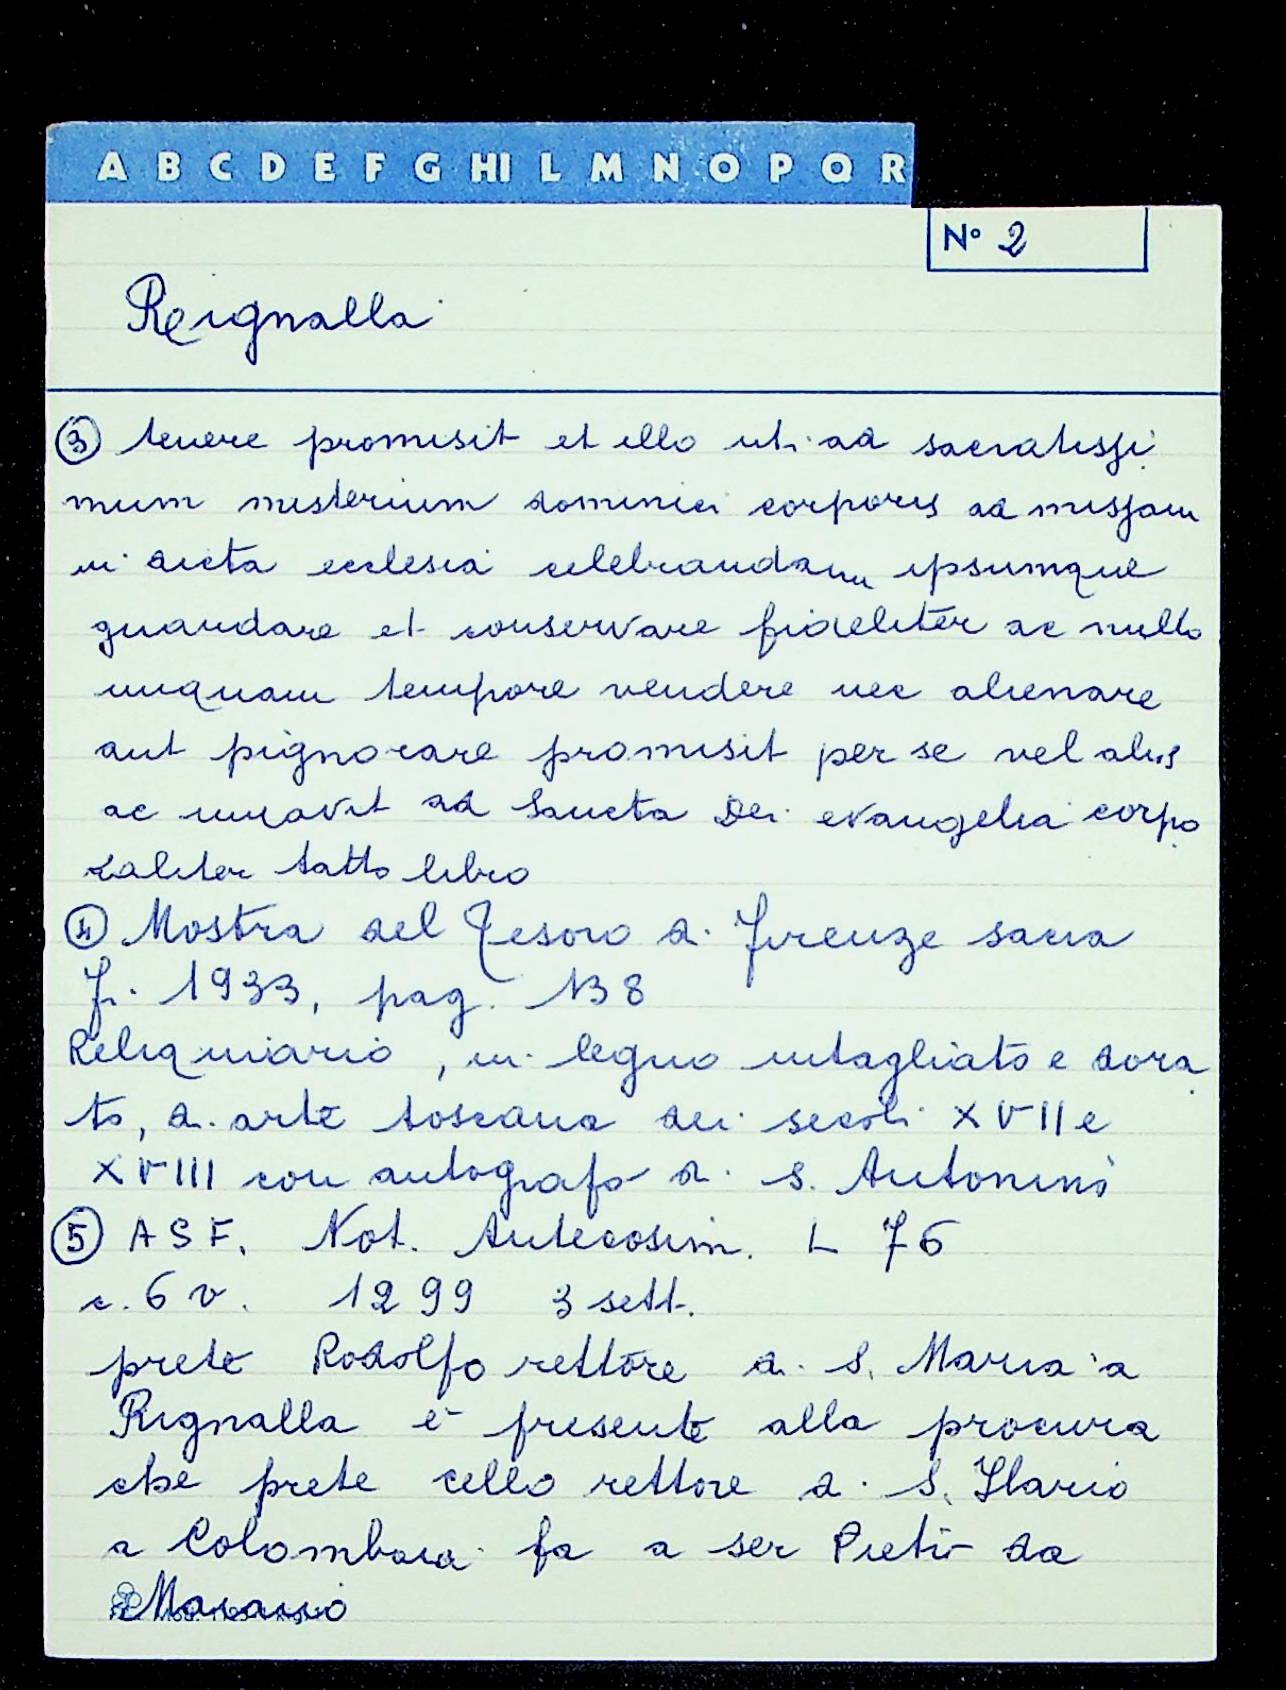 A B C D E F G HI L M N O P Q R
Nº 2
Reignalla
③ tenere promisit et illo uti ad sacratissi
mum misterium dominici corporis ad missam
in dicta ecclesia celebrandam ipsumque
guardare et conservare fideliter ac nullo
unquam tempore vendere nec alienare
aut pignorare promisit per se vel alios
ac iuravit ad Sancta Dei evangelia corpo
raliter tatto libro
④ Mostra del Tesoro di Firenze sacra
Fi. 1933, pag. 138
Reliquiario, in legno intagliato e dora
to, di arte toscana dei secoli XVII e
XVIII con autografo di S. Antonino
⑤ ASF. Not. Antecosim. L 76
c. 6 v. 1299 3 sett.
prete Rodolfo rettore di S. Maria a
Rignalla è presente alla procura
che prete Cello rettore di S. Ilario
a Colombaia fa a ser Pietro da